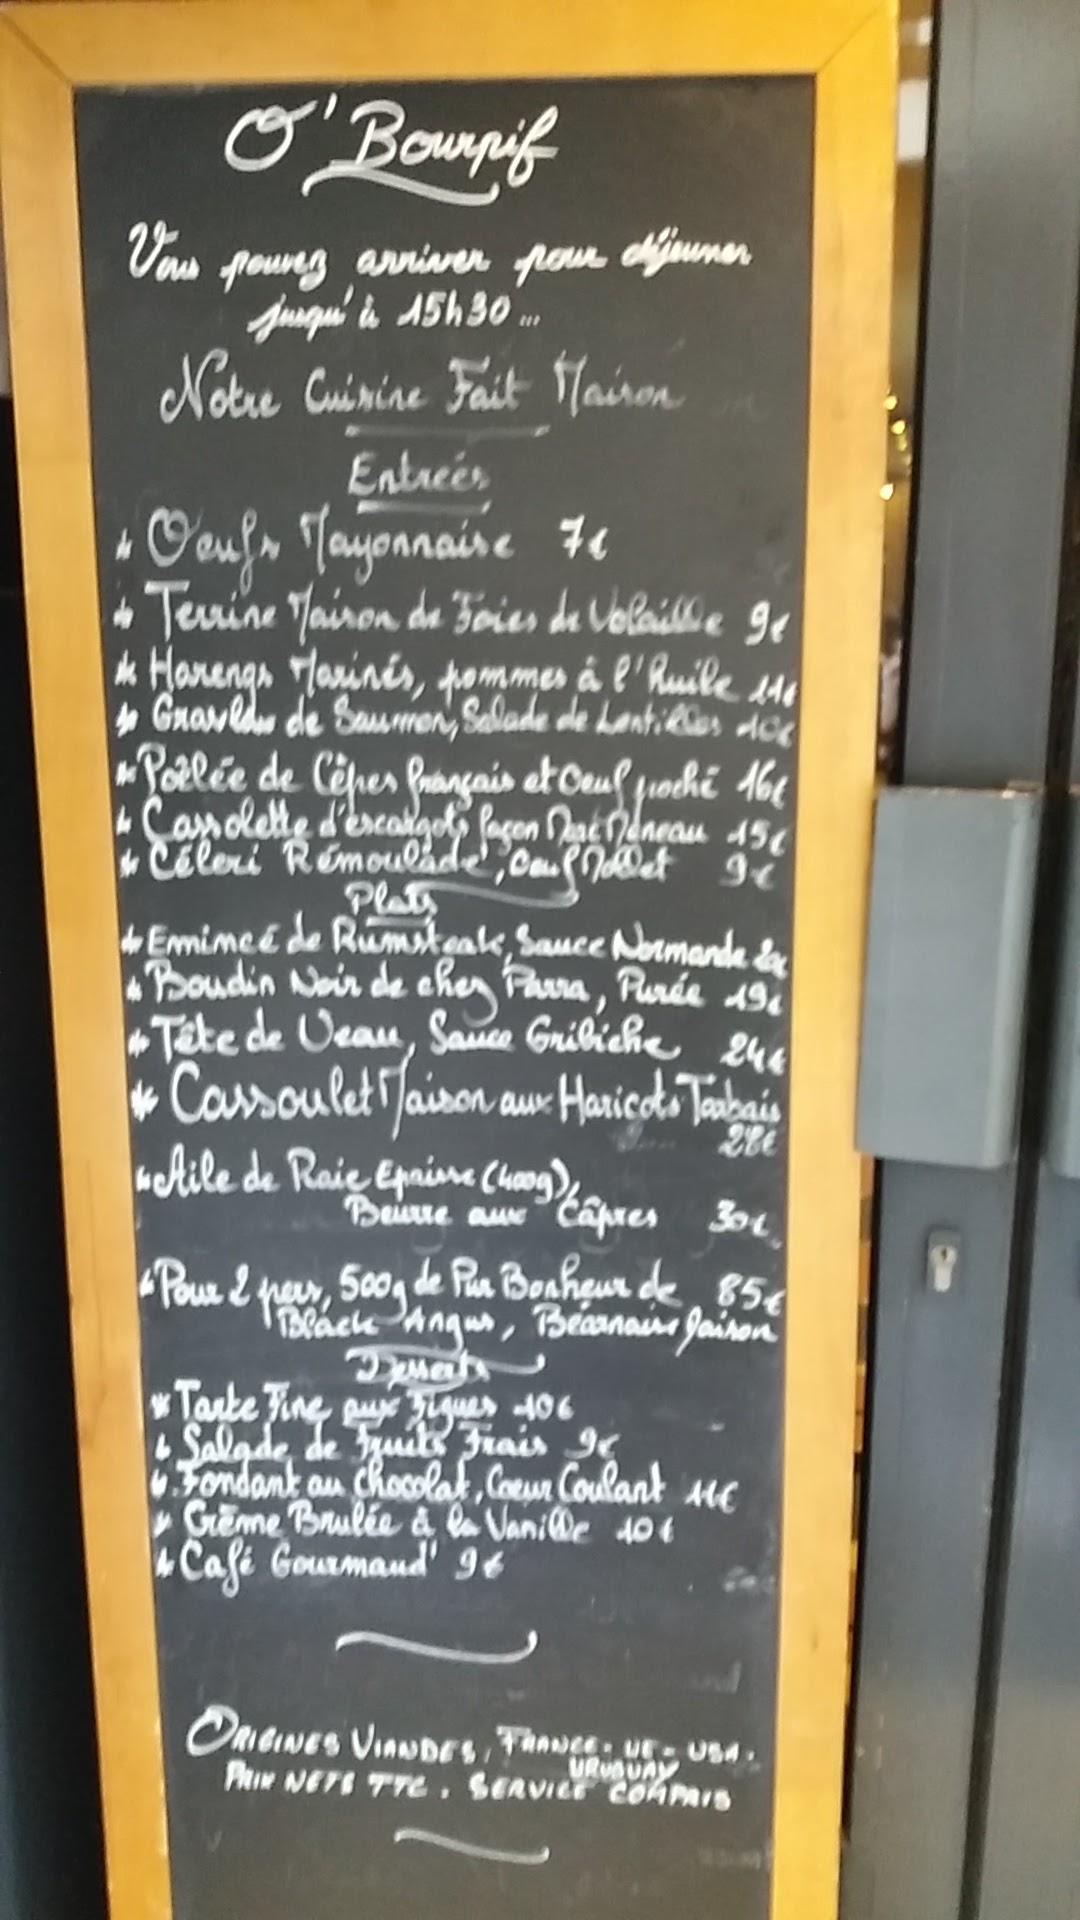 O'Bourpif
Vous pouvez arriver pour déjeuner
jusqu'à 15h30...
Notre Cuisine Fait Maison
Entrées
* Oeufs Mayonnaise 7€
* Terrine Maison de Foies de Volaille 9€
* Harengs Marinés, pommes à l'Huile 11€
* Gravlax de Saumon, Salade de Lentilles 10€
* Poêlée de Cêpes français et Oeuf poché 16€
* Cassolette d'escargots façon Meneau 15€
* Céleri Rémoulade, Oeuf Mollet 9€
Plats
* Emincé de Rumsteak, Sauce Normande
* Boudin Noir de chez Parra, Purée 19€
* Tête de Veau, Sauce Gribiche 24€
* Cassoulet Maison aux Haricots Tarbais
28€
* Aile de Raie Epaisse (400g),
Beurre aux Câpres 30€
* Pour 2 pers, 500g de Pur Bonheur de 85€
Black Angus, Béarnaise Maison
Desserts
* Tarte Fine aux Figues 10€
* Salade de Fruits Frais 9€
* Fondant au Chocolat, Coeur Coulant 11€
* Crême Brulée à la Vanille 10€
* Café Gourmand 9€
ORIGINES VIANDES, FRANCE - UE - USA.
URUGUAY
PRIX NETS TTC. SERVICE COMPRIS